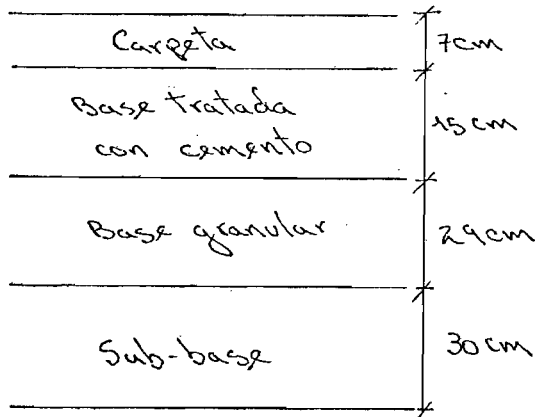 Carpeta 7cm
Base tratada
con cemento 15cm
Base granular 29cm
Sub-base 30cm